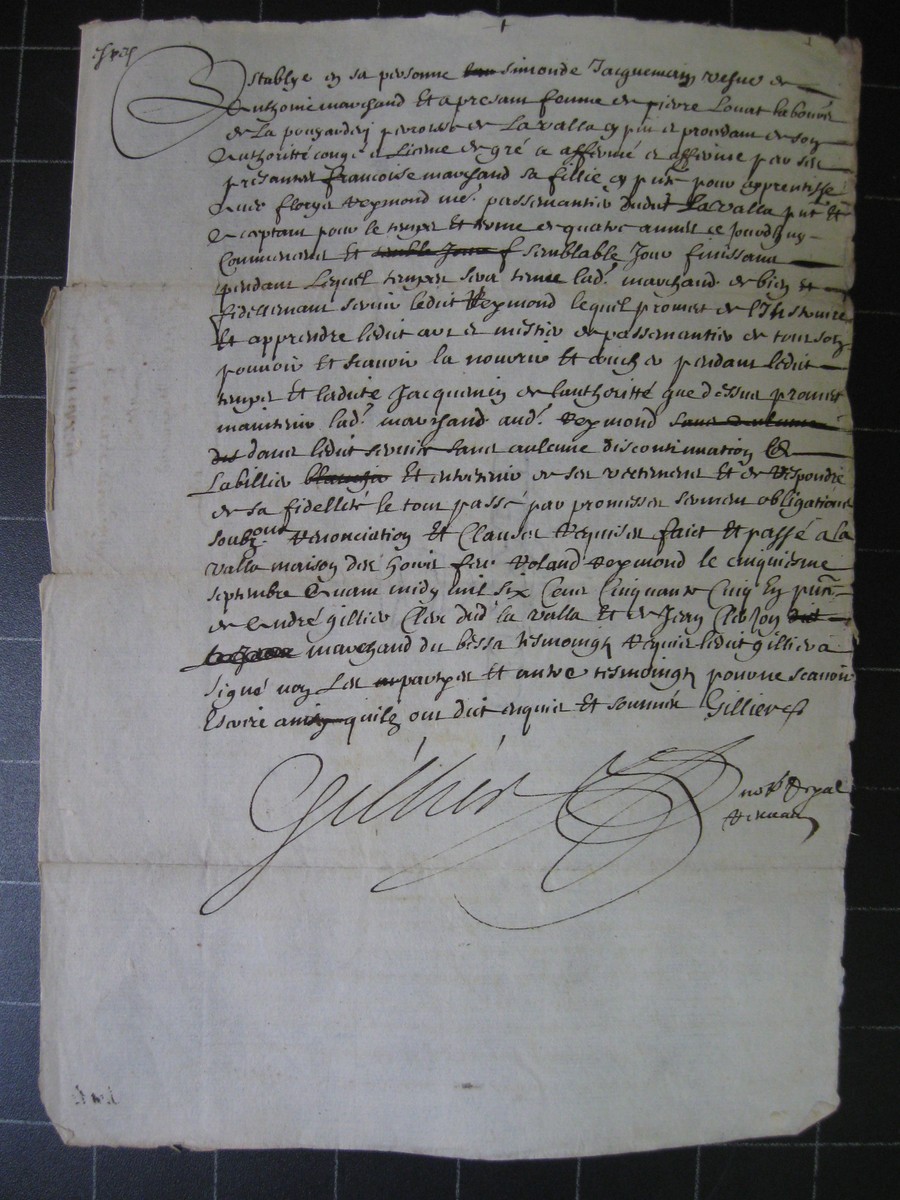 Establye en sa personne simonde Jacquemin vefve de
Anthoine marchand Et a presant femme de pierre Louat laboure
de La parroisse de La valla et procedant de son
Authoritté congé et Licence de gré a affermé et afferme par ses
presantes francoise marchand sa fillie pour apprentisse
Avec reymond me. passemantier dudit La valla pnt Et
Acceptant pour le temps Et terme de quatre annees ce Jourdhuy
Commencent Et semblable Jour finissant
pendant Lequel temps sera tenue lad. marchand de bien et
fidellemant servir ledit Reymond lequel promet de l'Instruire
Et apprendre ledit art et mestier de passemantier de tout son
pouvoir Et scavoir la nourrir Et coucher pendant ledit
temps Et ladite Jacquemin de lauthoritté que dessus promet
maintenir lad. marchand aud. reymond
dans ledit service sans aulcune discontinuation
Labillier Et entretenir de ses vestement Et de Respondre
de sa fidellité le tout passé par promesses serment obligations
soubz renonciation Et Clauses requises faict Et passé a La
valla maison des hoirs feu roland reymond le cinquiesme
septembre avant midy mil six Cens Cinquante Cinq En
de André gillier Clerc dud la valla Et de Jean
marchand du bessa tesmoings requis ledit gillier a
signé non Les parties et autre tesmoings pour ne scavoir
Escrire quilz ont dit enquis Et sommés Gillier
Gillier
not. Royal